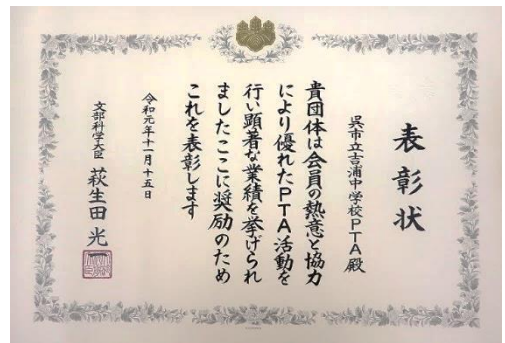 表彰状
呉市立吉浦中学校PTA殿
貴団体は会員の熱意と協力
により優れたPTA活動を
行い顕著な業績を挙げられ
ましたここに奨励のため
これを表彰します
令和元年十一月十五日
文部科学大臣 萩生田光一